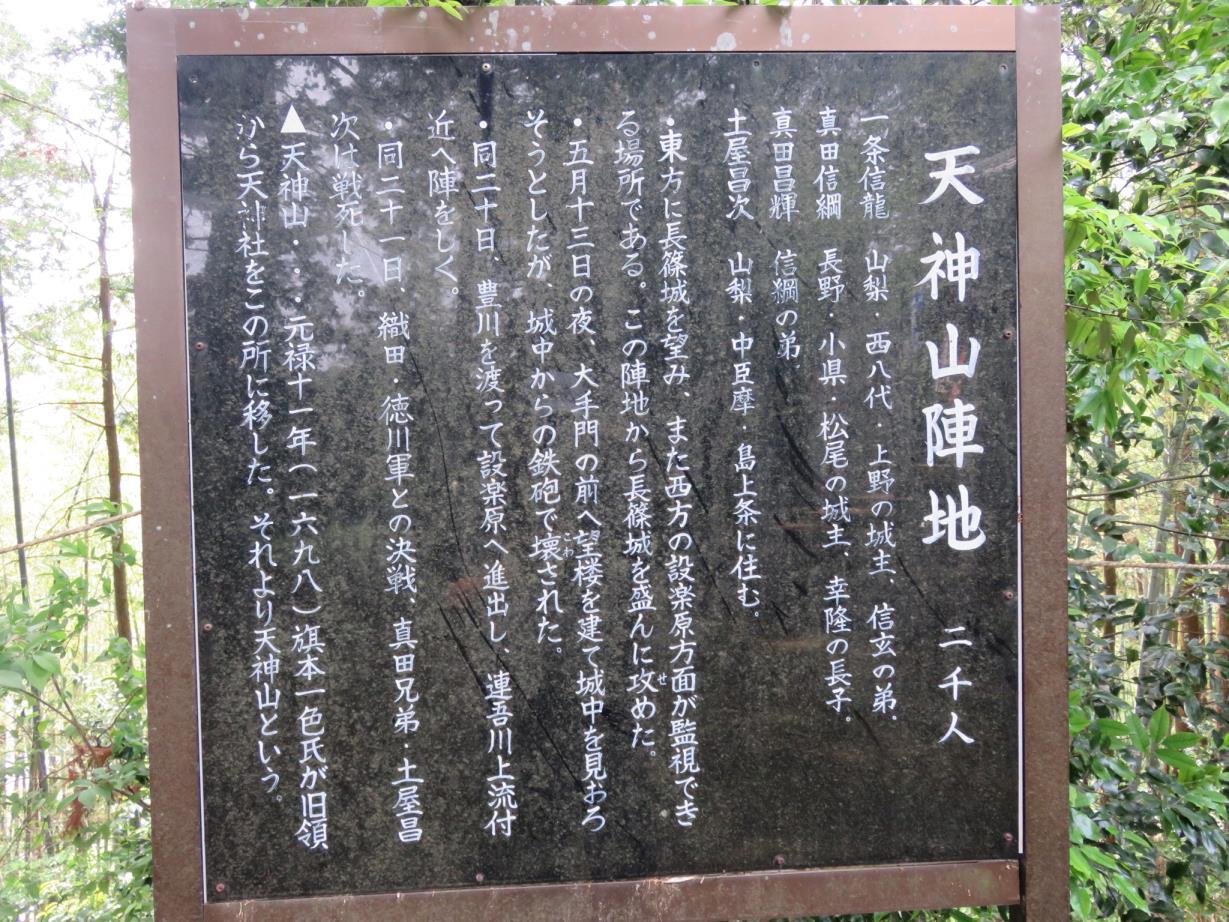 天神山陣地 二千人
一条信龍 山梨・西八代・上野の城主、信玄の弟。
真田信綱 長野・小県・松尾の城主、幸隆の長子。
真田昌輝 信綱の弟。
土屋昌次 山梨・中臣摩・島上条に住む。
・東方に長篠城を望み、また西方の設楽原方面が監視でき
る場所である。この陣地から長篠城を盛んに攻めた。
せ
・五月十三日の夜、大手門の前へ望楼を建て城中を見おろ
そうとしたが、城中からの鉄砲で壊された。
こわ
・同二十日、豊川を渡って設楽原へ進出し、連吾川上流付
近へ陣をしく。
・同二十一日、織田・徳川軍との決戦、真田兄弟・土屋昌
次は戦死した。
▲天神山・・・元禄十一年(一六九八)旗本一色氏が旧領
から天神社をこの所に移した。それより天神山という。